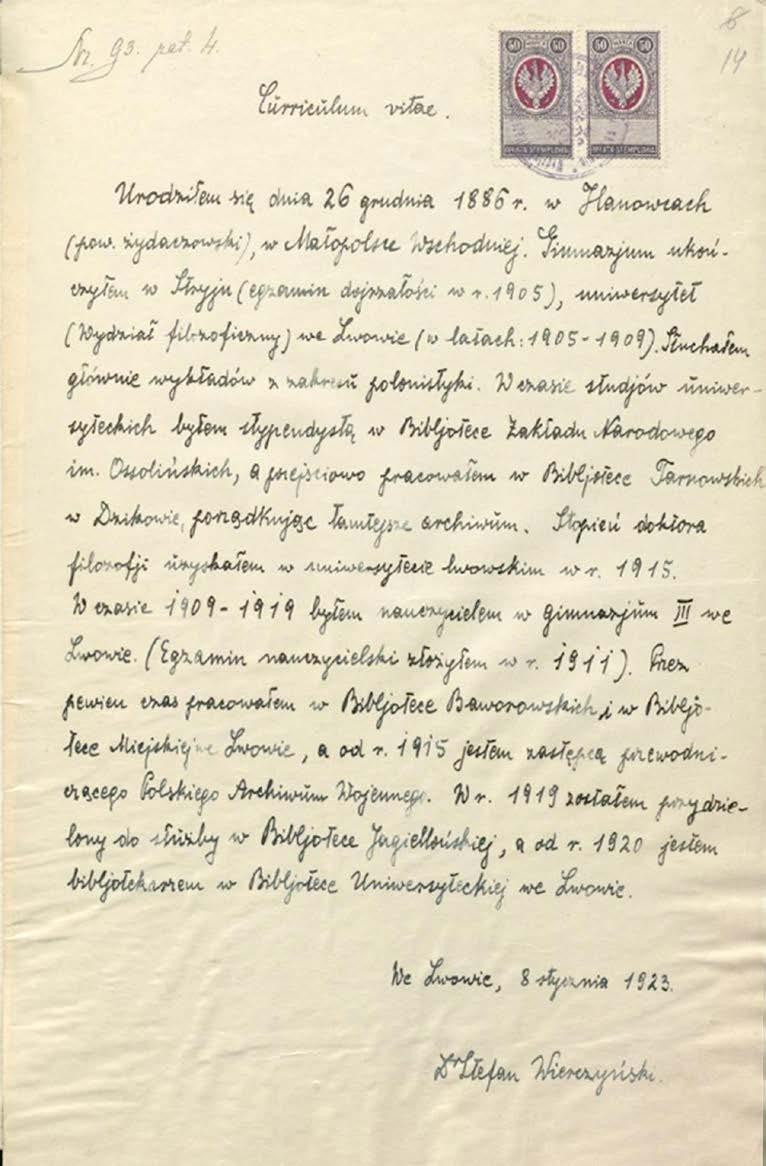 Nr. 93. pat. 4.
8
14
50 50 50 50
OPŁATA STEMPLOWA OPŁATA STEMPLOWA
Curriculum vitae.
Urodziłem się dnia 26 grudnia 1886 r. w Hanowcach
(pow. żydaczowski), w Małopolsce Wschodniej. Gimnazjum ukoń-
czyłem w Stryju (egzamin dojrzałości w r. 1905), uniwersytet
(Wydział filozoficzny) we Lwowie (w latach: 1905-1909). Słuchałem
głównie wykładów z zakresu polonistyki. W czasie studjów uniwer-
syteckich byłem stypendystą w Bibljotece Zakładu Narodowego
im. Ossolińskich, a przejściowo pracowałem w Bibljotece Tarnowskich
w Dzikowie, porządkując tamtejsze archiwum. Stopień doktora
filozofji uzyskałem w uniwersytecie lwowskim w r. 1915.
W czasie 1909-1919 byłem nauczycielem w gimnazjum III we
Lwowie. (Egzamin nauczycielski złożyłem w r. 1911). Przez
pewien czas pracowałem w Bibljotece Baworowskich i w Bibljo-
tece Miejskiej we Lwowie, a od r. 1915 jestem zastępcą przewodni-
czącego Polskiego Archiwum Wojennego. W r. 1919 zostałem przydzie-
lony do służby w Bibljotece Jagiellońskiej, a od r. 1920 jestem
bibljotekarzem w Bibljotece Uniwersyteckiej we Lwowie.
We Lwowie, 8 stycznia 1923.
Dr Stefan Wierczyński.